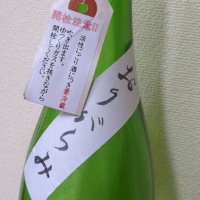 開栓注意!!
活性にごり酒につき要冷蔵
吹き出ます。
ゆっくりガスを抜きながら
開栓してください。
おりがらみ